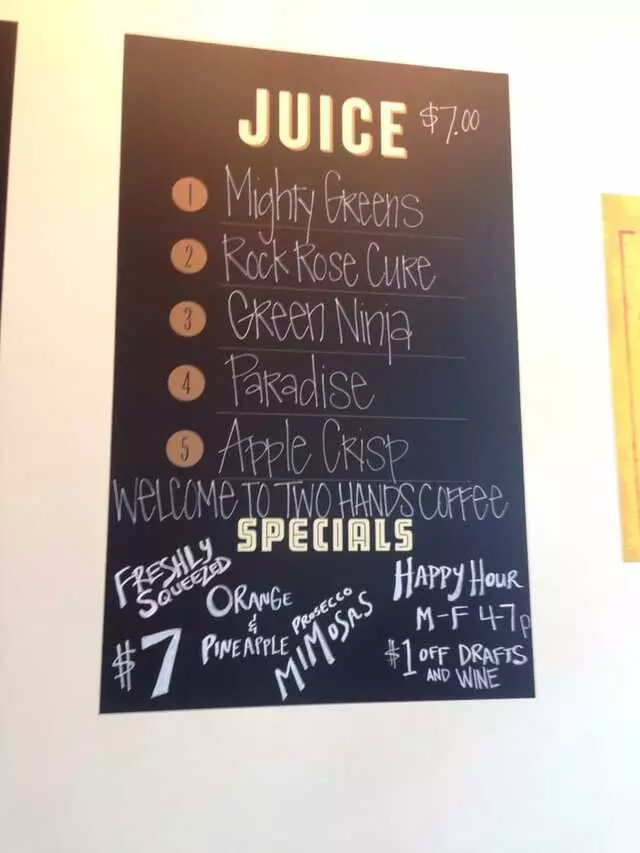 JUICE $7.00
1 Mighty Greens
2 Rock Rose Cure
3 Green Ninja
4 Paradise
5 Apple Crisp
WELCOME TO TWO HANDS COFFEE
SPECIALS
FRESHLY
SQUEEZED
$7
ORANGE
&
PINEAPPLE
PROSECCO
MIMOSAS
HAPPY HOUR
M-F 4-7p
$1 OFF DRAFTS
AND WINE